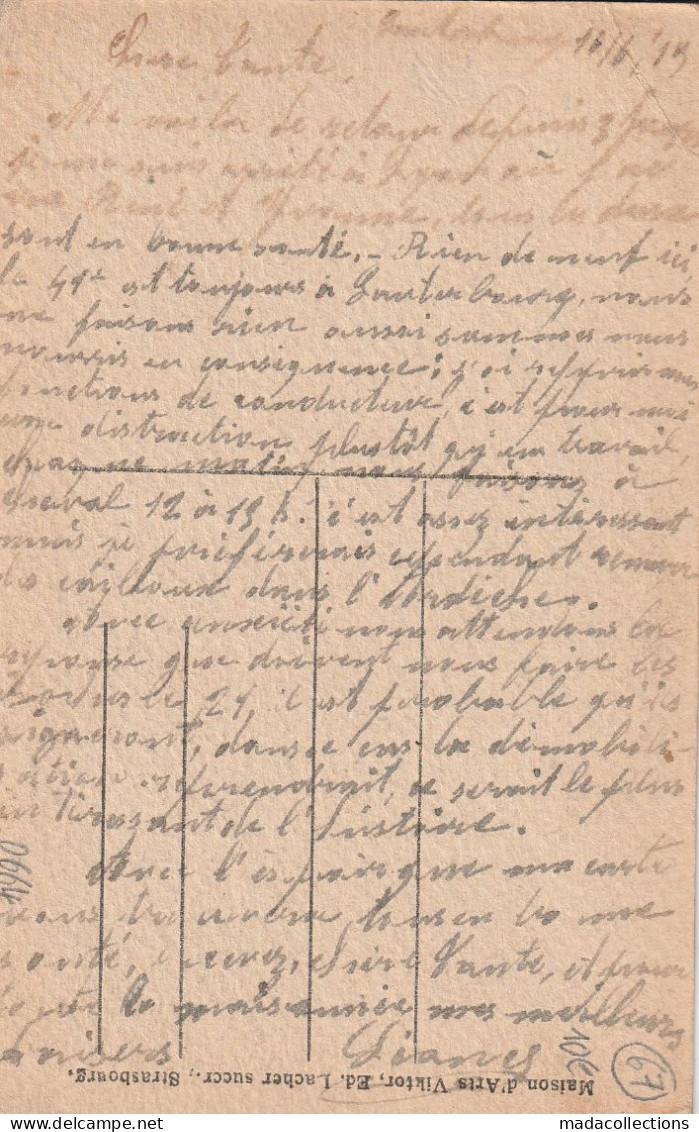 Lauterbourg 16/6/19
Chère Tante,
Me voilà de retour depuis 3 jours
je me suis arrêté à Lyon où j'ai
vu René et Yvonne, tous les deux
sont en bonne santé. - Rien de neuf ici
le 41e est toujours à Lauterbourg, nous
ne faisons rien aussi sommes nous
nourris en conséquence ; j'ai repris mes
fonctions de conducteur, c'est pour moi
une distraction plustôt qu'un travail,
chaque matin nous faisons à
cheval 12 à 15 k. c'est assez intéressant
mais je préférerais cependant remuer
des cailloux dans l'Ardèche.
Avec anxiété nous attendons la
réponse que doivent nous faire les
le 21, il est probable qu'ils
signeront, dans ce cas la démobili-
sation reprendrait, ce serait le plus
intéressant de l'histoire.
Avec l'espoir que ma carte
vous trouvera tous en bonne
santé, recevez, chère Tante, et pour
toute la maisonnée mes meilleurs
baisers
0664
10€
67
Maison d'Arts Viktor, Ed. Lacher succr., Strasbourg.
www.delcampe.net
madacollections